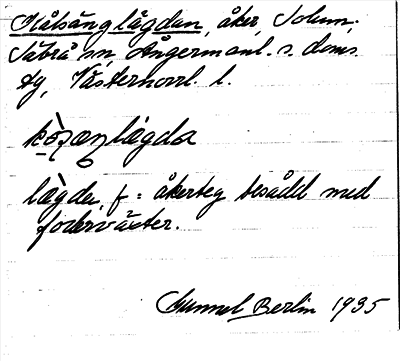 Kålsänglägdan, åker, Solum.
Säbrå sn, Ångermanl. s. doms.
hg, Västernorrl. l.
kòsænlägda
lägda, f = åkerteg besådd med
foderväxter.
Gunnel Berlin 1935